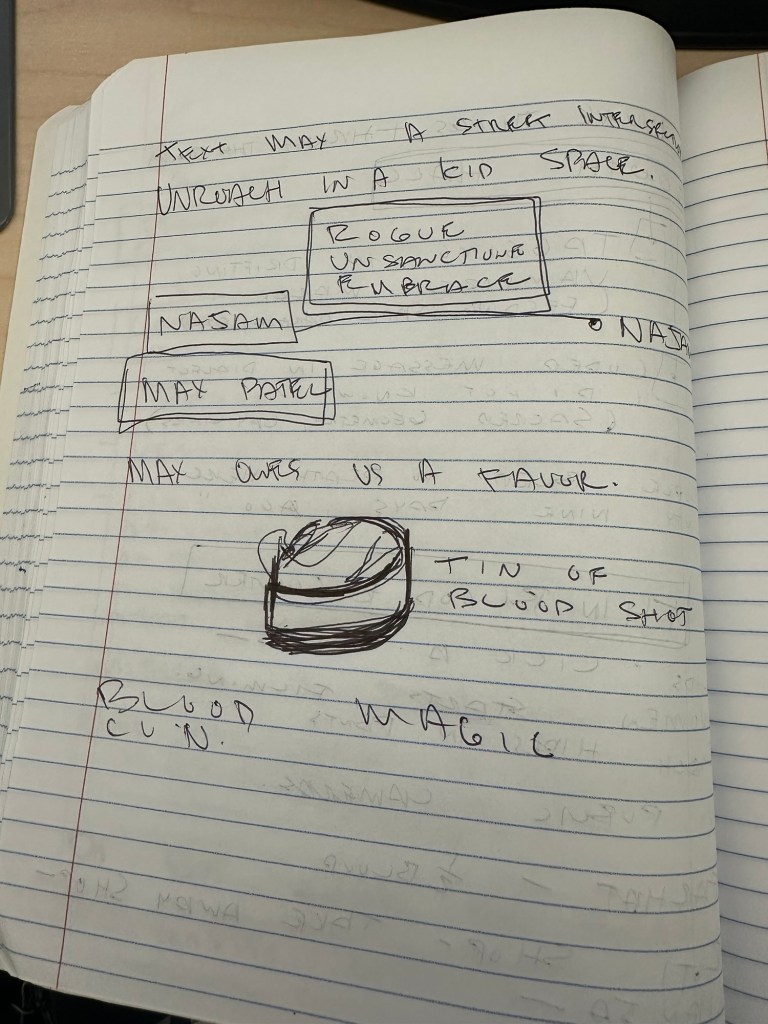 TEXT MAX A STREET INTERSEC
IN A KID SPACE.
ROGUE
UNSANCTIONE
EMBRACE
NASAM
NASA
MAX PATEL
MAX OWES US A FAVOR.
TIN OF
BLOOD SHOT
BLOOD MAGIC